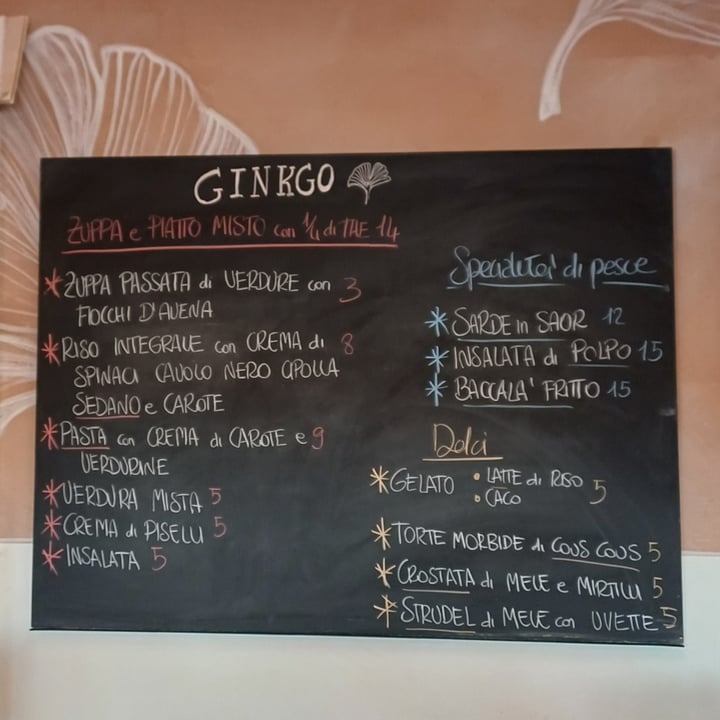 GINKGO
ZUPPA e PIATTO MISTO con 1/4 di THE 14
* ZUPPA PASSATA di VERDURE con 3
FIOCCHI D'AVENA
* RISO INTEGRALE con CREMA di 8
SPINACI CAVOLO NERO CIPOLLA
SEDANO e CAROTE
* PASTA con CREMA di CAROTE e 9
VERDURINE
* VERDURA MISTA 5
* CREMA di PISELLI 5
* INSALATA 5
di pesce
* SARDE in SAOR 12
* INSALATA di POLPO 15
* BACCALA' FRITTO 15
Dolci
* GELATO • LATTE di RISO 5
• CACO
* TORTE MORBIDE di COUS COUS 5
* CROSTATA di MELE e MIRTILLI 5
* STRUDEL di MELE con UVETTE 5